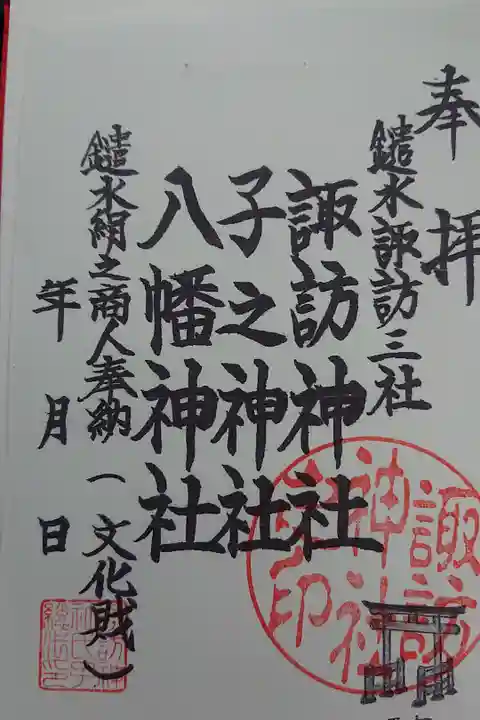 奉拝
鑓水諏訪三社
諏訪神社
子之神神社
八幡神社
鑓水絹之商人奉納(文化財)
年月日
諏訪
神社
印